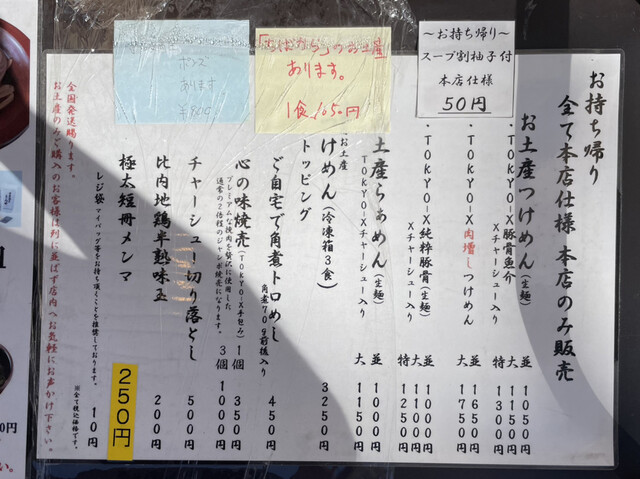 お持ち帰り
全て本店仕様 本店のみ販売
～お持ち帰り～
スープ割柚子付
本店仕様
50円
お土産つけめん(生麺)
・TOKYO-X豚骨魚介
Xチャーシュー入り
並 1050円
大 1150円
特 1300円
・TOKYO-X
肉増しつけめん
並 1650円
大 1750円
・TOKYO-X純粋豚骨(生麺)
Xチャーシュー入り
並 1000円
大 1100円
特 1250円
土産らぁめん(生麺)
TOKYO-Xチャーシュー入り
並 1000円
大 1150円
のお土産
あります。
1食1050円
お土産
けめん(冷凍箱3食)
3250円
トッピング
ご自宅で角煮トロめし
角煮70g前後入り
450円
心の味焼売(TOKYO-X手包み)
プレミアムな挽肉を贅沢に使用した
通常の2倍程のジャンボ焼売になります。
1個 350円
3個 1000円
チャーシュー切り落とし
500円
比内地鶏半熟味玉
200円
極太短冊メンマ
250円
ポンズ
あります
レジ袋
10円
※全て税込価格です。
全国発送賜ります。
お土産のみご購入のお客様は列に並ばず店内へお気軽にお声かけ下さい。